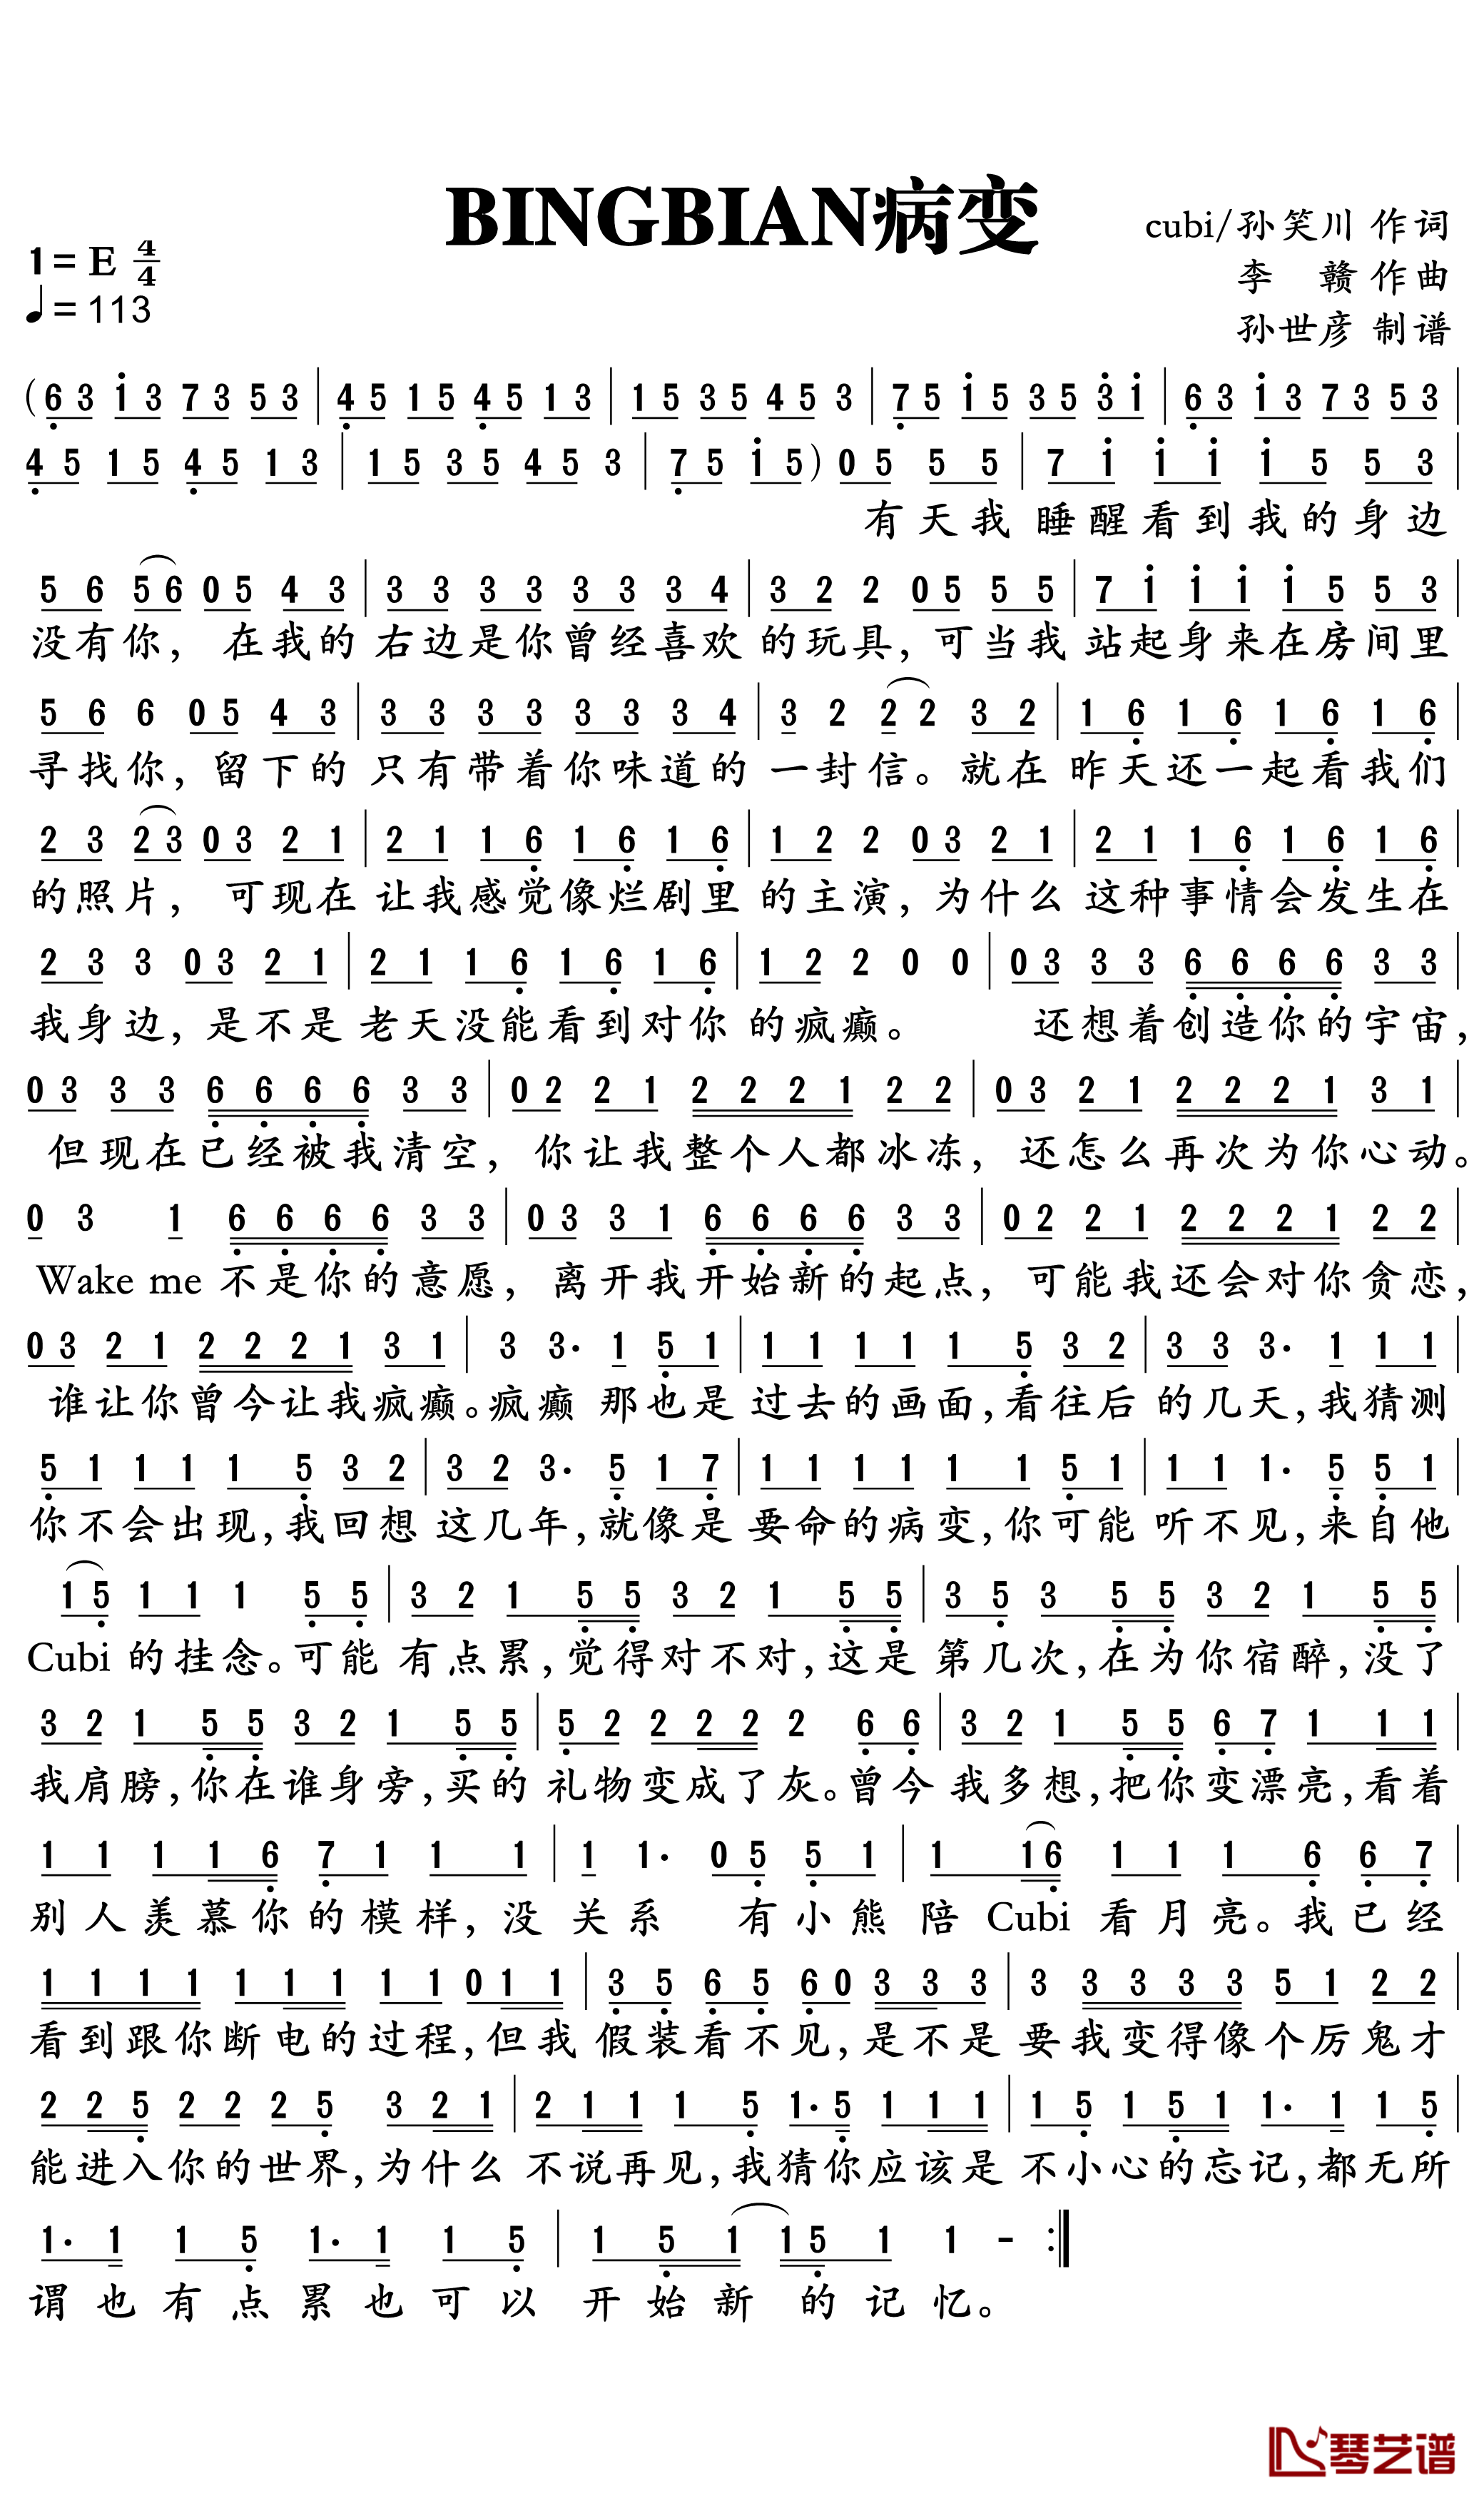 BINGBIAN病变
cubi/孙笑川 作词
1= E 4/4
李 赣 作曲
♩= 113
孙世彦 制谱
( 6 3 1 3 7 3 5 3 | 4 5 1 5 4 5 1 3 | 1 5 3 5 4 5 3 | 7 5 1 5 3 5 3 1 | 6 3 1 3 7 3 5 3 |
4 5 1 5 4 5 1 3 | 1 5 3 5 4 5 3 | 7 5 1 5 ) 0 5 5 5 | 7 1 1 1 1 5 5 3 |
有天我 睡醒看到我的身边
5 6 5 6 0 5 4 3 | 3 3 3 3 3 3 3 4 | 3 2 2 0 5 5 5 | 7 1 1 1 1 5 5 3 |
没有你, 在我的 右边是你曾经喜欢 的玩具, 可当我 站起身来在房间里
5 6 6 0 5 4 3 | 3 3 3 3 3 3 3 4 | 3 2 2 2 3 2 | 1 6 1 6 1 6 1 6 |
寻找你, 留下的 只有带着你味道的 一封信。就在 昨天还一起看我们
2 3 2 3 0 3 2 1 | 2 1 1 6 1 6 1 6 | 1 2 2 0 3 2 1 | 2 1 1 6 1 6 1 6 |
的照片, 可现在 让我感觉像烂剧里 的主演, 为什么 这种事情会发生在
2 3 3 0 3 2 1 | 2 1 1 6 1 6 1 6 | 1 2 2 0 0 | 0 3 3 3 6 6 6 6 3 3 |
我身边, 是不是 老天没能看到对你 的疯癫。 还想着创造你的宇宙,
0 3 3 3 6 6 6 6 3 3 | 0 2 2 1 2 2 2 1 2 2 | 0 3 2 1 2 2 2 1 3 1 |
但现在已经被我清空, 你让我整个人都冰冻, 还怎么再次为你心动。
0 3 1 6 6 6 6 3 3 | 0 3 3 1 6 6 6 6 3 3 | 0 2 2 1 2 2 2 1 2 2 |
Wake me 不是你的意愿, 离开我开始新的起点, 可能我还会对你贪恋,
0 3 2 1 2 2 2 1 3 1 | 3 3· 1 5 1 | 1 1 1 1 1 5 3 2 | 3 3 3· 1 1 1 |
谁让你曾今让我疯癫。疯癫 那也是 过去的画面, 看往后 的几天, 我猜测
5 1 1 1 1 5 3 2 | 3 2 3· 5 1 7 | 1 1 1 1 1 1 5 1 | 1 1 1· 5 5 1 |
你不会出现, 我回想 这几年, 就像是 要命的病变, 你可能 听不见, 来自他
1 5 1 1 1 5 5 | 3 2 1 5 5 3 2 1 5 5 | 3 5 3 5 5 3 2 1 5 5 |
Cubi 的挂念。可能 有点累, 觉得对不对, 这是 第几次, 在为你宿醉, 没了
3 2 1 5 5 3 2 1 5 5 | 5 2 2 2 2 2 6 6 | 3 2 1 5 5 6 7 1 1 1 |
我肩膀, 你在谁身旁, 买的 礼物变成了灰。曾今 我多想, 把你变漂亮, 看着
1 1 1 1 6 7 1 1 1 | 1 1· 0 5 5 1 | 1 1 6 1 1 1 6 6 7 |
别人羡慕你的模样, 没 关系 有小熊 陪 Cubi 看月亮。我已经
1 1 1 1 1 1 1 1 1 0 1 1 | 3 5 6 5 6 0 3 3 3 | 3 3 3 3 3 5 1 2 2 |
看到跟你断电的过程, 但我 假装看不见, 是不是 要我变得像个厉鬼才
2 2 5 2 2 2 5 3 2 1 | 2 1 1 1 5 1· 5 1 1 1 | 1 5 1 5 1 1· 1 1 5 |
能进入你的世界, 为什么 不说再见, 我猜你应该是 不小心的忘记, 都无所
1· 1 1 5 1· 1 1 5 | 1 5 1 1 5 1 1 - :|
谓也有点累也可以 开始新的记忆。
琴艺谱